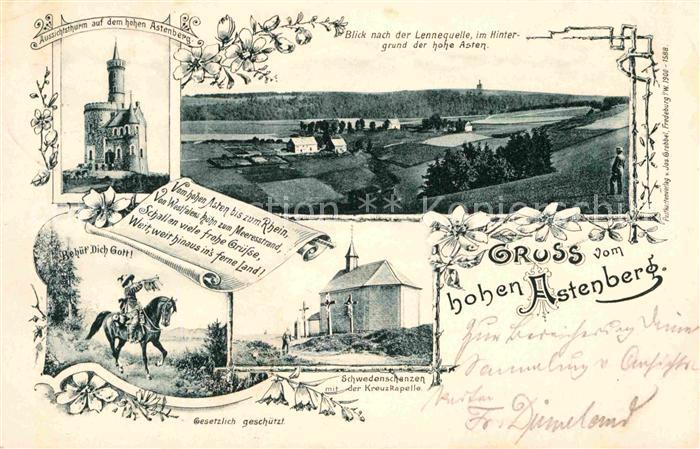 Aussichtsthurm auf dem hohen Astenberg.
Blick nach der Lennequelle, im Hinter-
grund der hohe Asten.
Postkartenverlag v. Jos. Grobbel, Fredeburg i/W. 1900 - 1588.
Vom hohen Asten bis zum Rhein,
Von Westfalens Höhn zum Meeresstrand,
Schallen viele frohe Grüße,
Weit weit hinaus in's ferne Land!
Behüt' Dich Gott!
GRUSS vom
hohen Astenberg.
Zur Bereicherung Deiner
Sammlung v Ansichts
karten
Fr.
Schwedenschanzen
mit der Kreuzkapelle.
Gesetzlich geschützt.